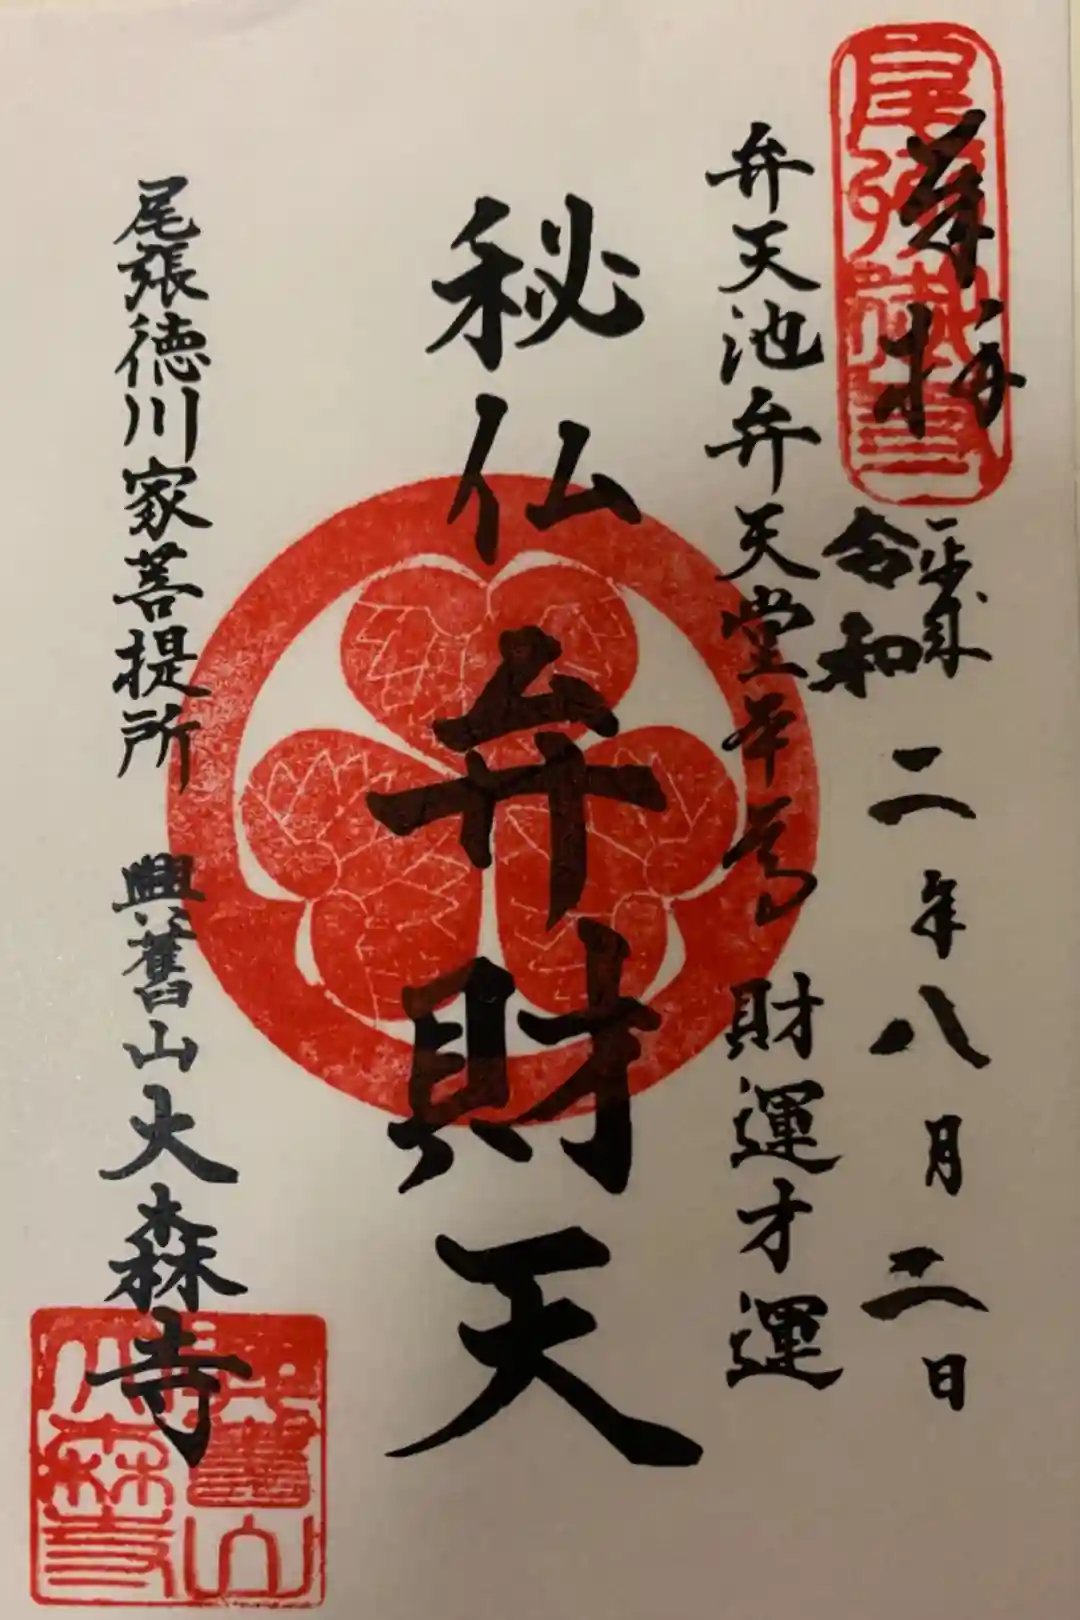 奉拝
令和二年八月二日
弁天池弁天堂本尊 財運才運
秘仏弁財天
尾張徳川家菩提所 興舊山大森寺
興舊山
大森寺